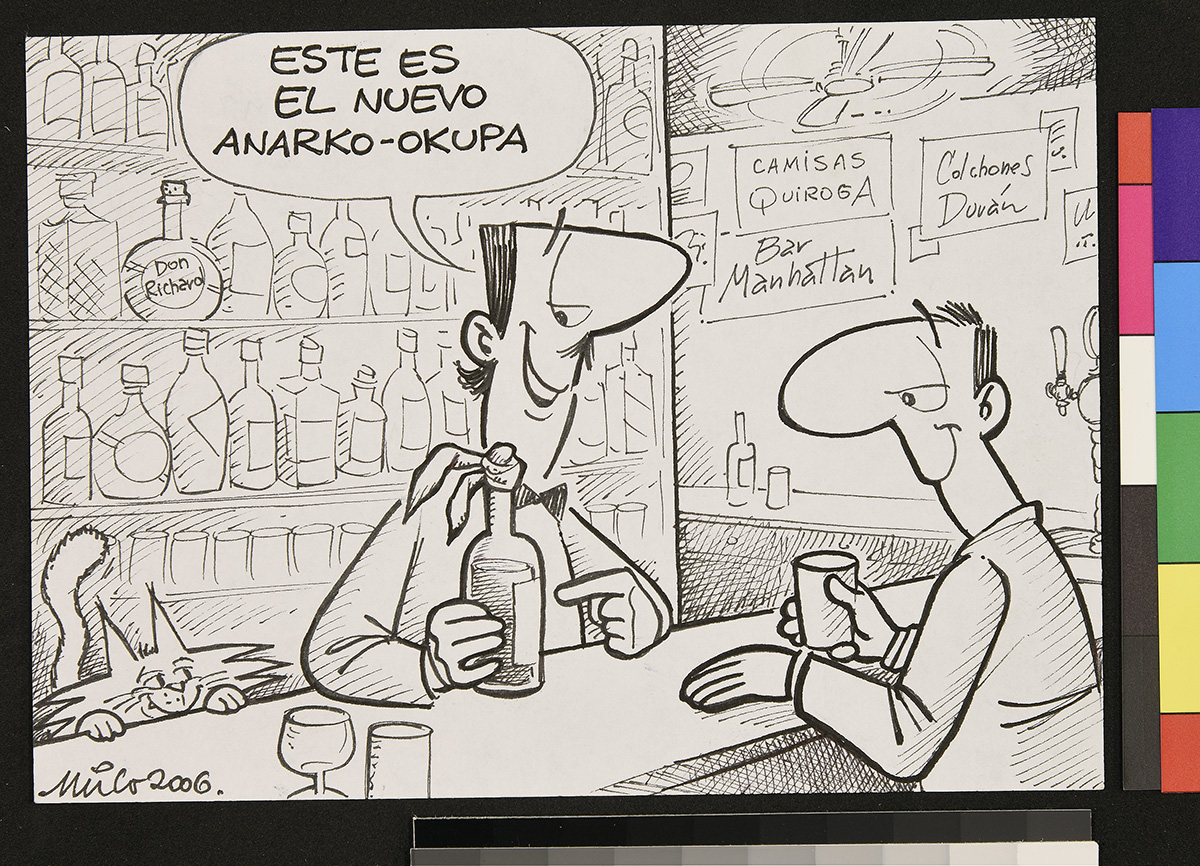 ESTE ES
EL NUEVO
ANARKO-OKUPA
Don
Richard
CAMISAS
QUIROGA
Colchones
Durán
Bar
Manhattan
2006.